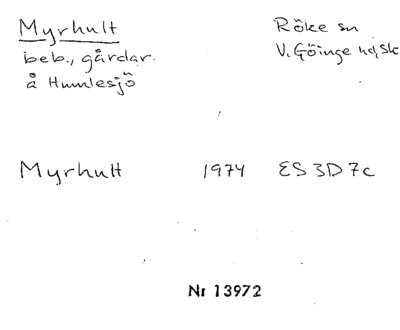 Myrhult
Röke sn
beb., gårdar.
V. Göinge hd, Sk
å Humlesjö
Myrhult 1974 ES 3D7c
Nr 13972